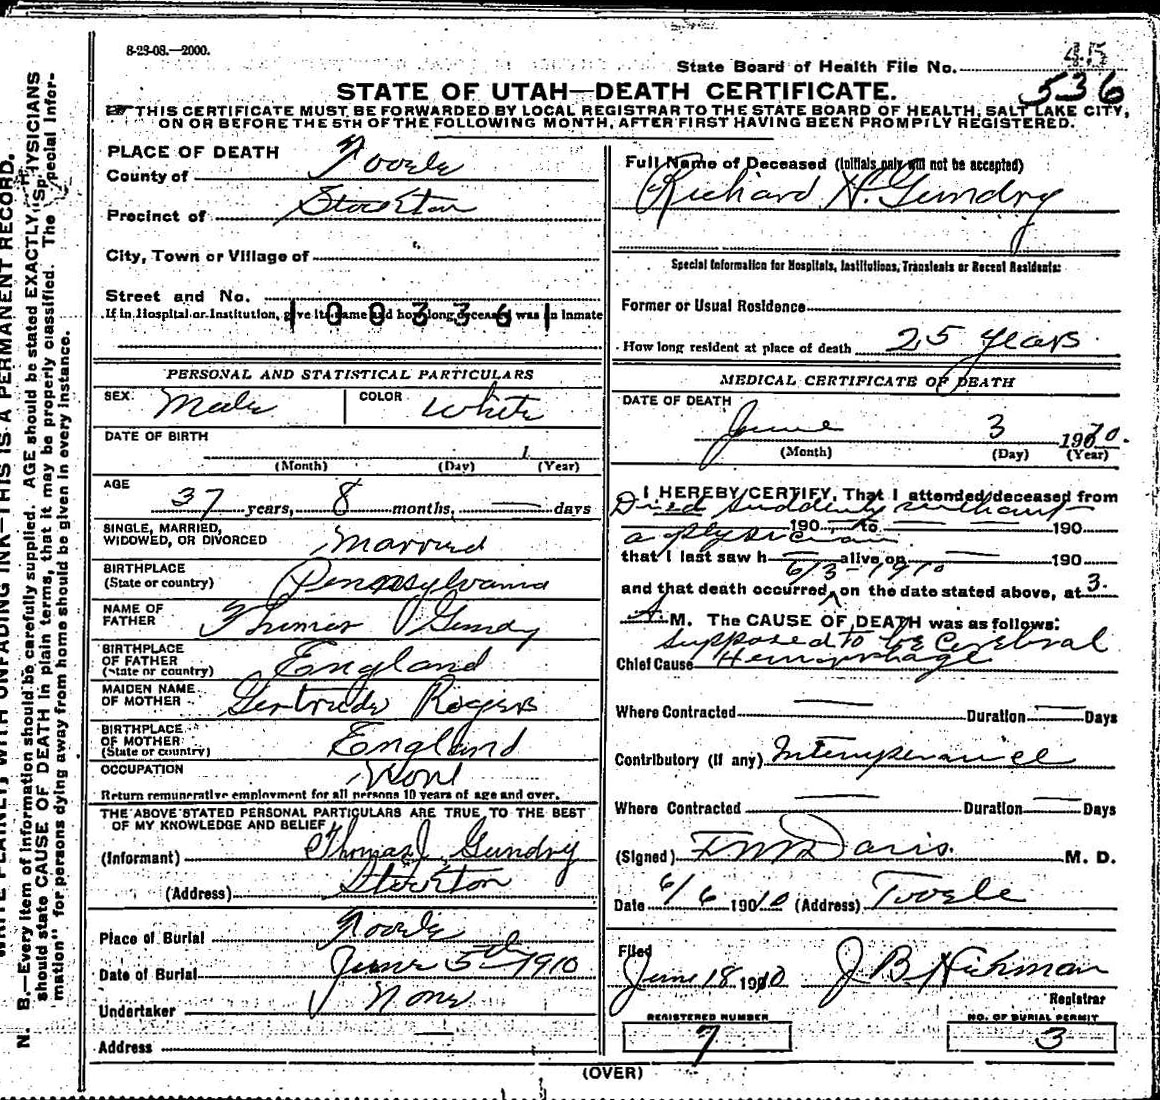 8-23-08.—2000.
State Board of Health File No. 45
536
STATE OF UTAH—DEATH CERTIFICATE.
THIS CERTIFICATE MUST BE FORWARDED BY LOCAL REGISTRAR TO THE STATE BOARD OF HEALTH, SALT LAKE CITY,
ON OR BEFORE THE 5TH OF THE FOLLOWING MONTH, AFTER FIRST HAVING BEEN PROMPILY REGISTERED.
PLACE OF DEATH
County of Tooele
Precinct of Stockton
City, Town or Village of
Street and No.
If in Hospital or Institution, give its name and how long deceased was an inmate
1003361
PERSONAL AND STATISTICAL PARTICULARS
SEX. Male COLOR White
DATE OF BIRTH
1
(Month) (Day) (Year)
AGE
37 years, 8 months, — days
SINGLE, MARRIED,
WIDOWED, OR DIVORCED Married
BIRTHPLACE
(State or country) Pennsylvania
NAME OF
FATHER Thomas Gundry
BIRTHPLACE
OF FATHER
(State or country) England
MAIDEN NAME
OF MOTHER Gertrude Rogers
BIRTHPLACE
OF MOTHER
(State or country) England
OCCUPATION None
Return remunerative employment for all persons 10 years of age and over.
THE ABOVE STATED PERSONAL PARTICULARS ARE TRUE TO THE BEST
OF MY KNOWLEDGE AND BELIEF
(Informant) Thomas J. Gundry
(Address) Stockton
Place of Burial Tooele
Date of Burial June 5th 1910
Undertaker None
Address —
Full Name of Deceased (Initials only will not be accepted)
Richard H. Gundry
Special Information for Hospitals, Institutions, Transients or Recent Residents:
Former or Usual Residence
How long resident at place of death 25 years
MEDICAL CERTIFICATE OF DEATH
DATE OF DEATH
June 3 1910.
(Month) (Day) (Year)
I HEREBY CERTIFY, That I attended deceased from
Died suddenly without
190 — to — — 190
a physician
that I last saw h — alive on — 190
6/3-1910
and that death occurred, on the date stated above, at 3.
A. M. The CAUSE OF DEATH was as follows:
Supposed to be Cerebral
Chief Cause Hemorrhage
Where Contracted — Duration — Days
Contributory (if any) Intemperance
Where Contracted — Duration — Days
(Signed) F M Davis. M. D.
Date 6/6 1910 (Address) Tooele
Filed
June 18 1910 J B Hickman
Registrar
REGISTERED NUMBER
7
NO. OF BURIAL PERMIT
3
(OVER)
WRITE PLAINLY WITH UNFADING INK—THIS IS A PERMANENT RECORD.
N. B.—Every item of information should be carefully supplied. AGE should be stated EXACTLY. PHYSICIANS
should state CAUSE OF DEATH in plain terms, that it may be properly classified. The "Special Infor-
mation" for persons dying away from home should be given in every instance.